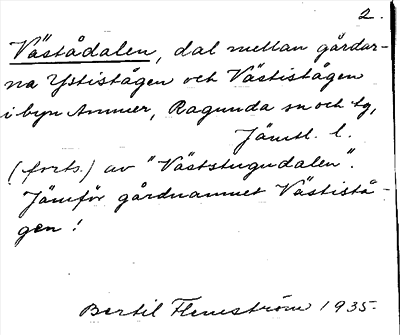 2.
Västådalen, dal mellan gårdar-
na Ystistågen och Västistågen
i byn Ammer, Ragunda sn och tg,
Jämtl. l.
(forts.) av "Väststugudalen".
Jämför gårdnamnet Västistå-
gen!
Bertil Flemström 1935.